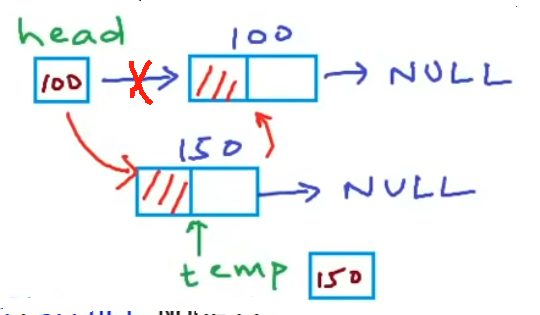 head
100
100 NULL
150
NULL
temp 150